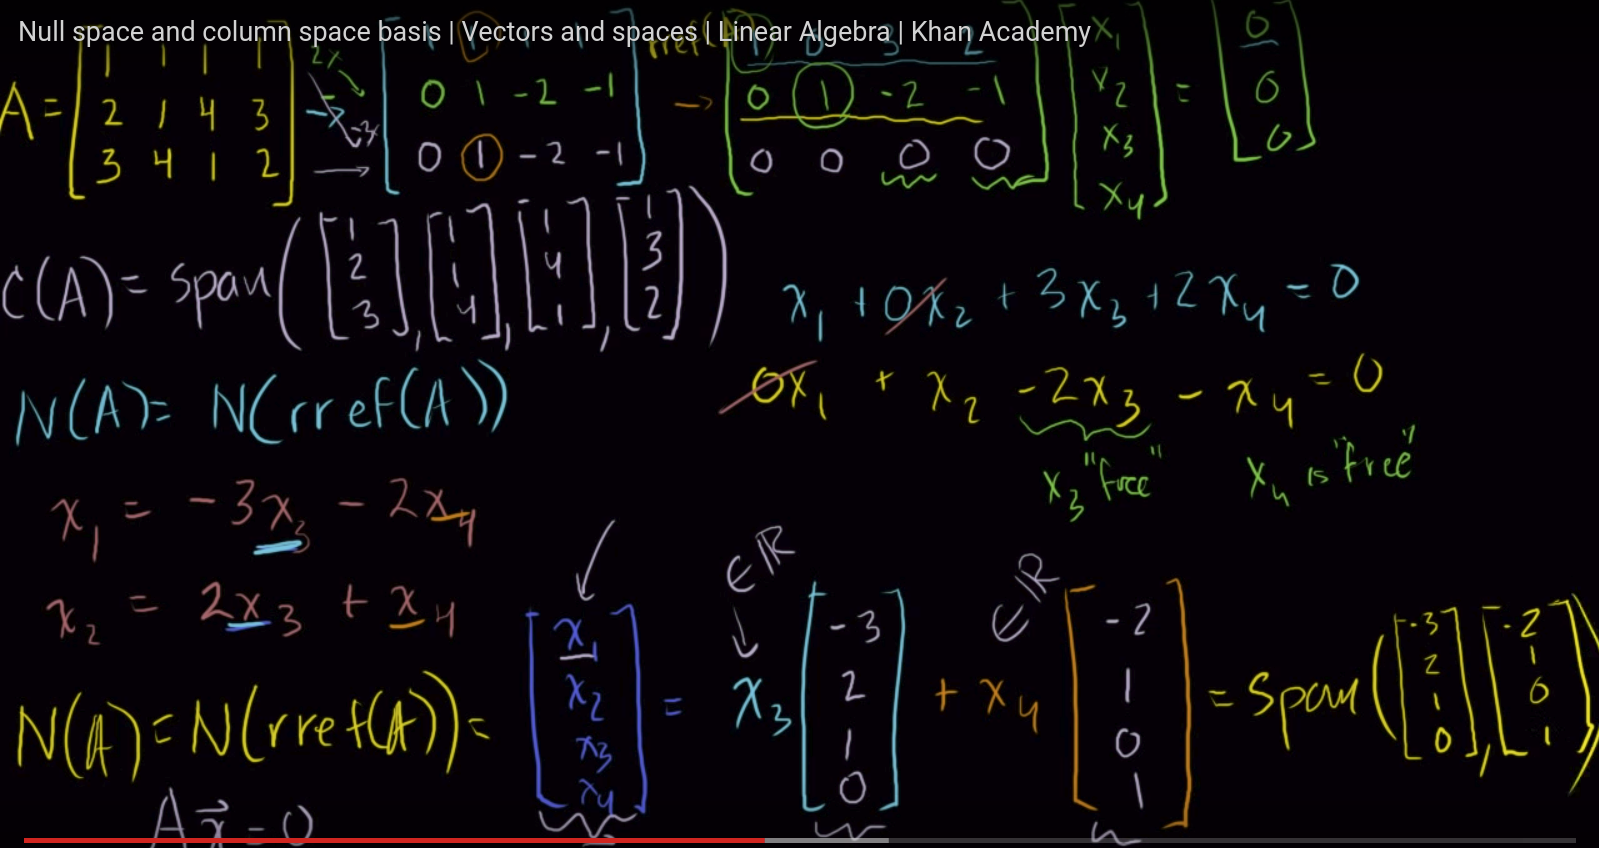 Null space and column space basis | Vectors and spaces | Linear Algebra | Khan Academy
A = [1 1 1 1; 2 1 4 3; 3 4 1 2] → [1 1 1 1; 0 1 -2 -1; 0 1 -2 -1] → [1 0 3 2; 0 1 -2 -1; 0 0 0 0] [x₁; x₂; x₃; x₄] = [0; 0; 0]
rref(A)
2x
-3x
C(A) = span([1; 2; 3], [1; 1; 4], [1; 4; 1], [1; 3; 2])
x₁ + 0x₂ + 3x₃ + 2x₄ = 0
N(A) = N(rref(A))
0x₁ + x₂ -2x₃ - x₄ = 0
x₃ "free"
x₄ is "free"
x₁ = -3x₃ - 2x₄
x₂ = 2x₃ + x₄
∈ℝ
∈ℝ
N(A) = N(rref(A)) = [x₁; x₂; x₃; x₄] = x₃ [-3; 2; 1; 0] + x₄ [-2; 1; 0; 1] = Span([-3; 2; 1; 0], [-2; 1; 0; 1])
Ax⃗ = 0